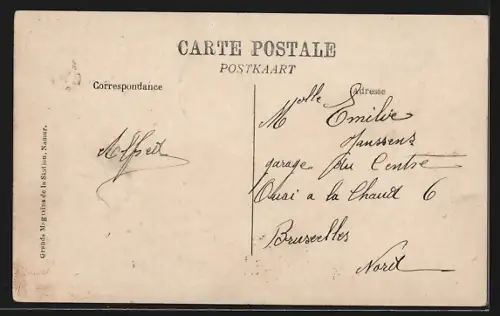 CARTE POSTALE
POSTKAART
Correspondance
Adresse
Grands Magasins de la Station, Namur.
Alfred
Melle Emilie
Hanssens
garage du Centre
Quai a la Chaud 6
Bruxelles
Nord